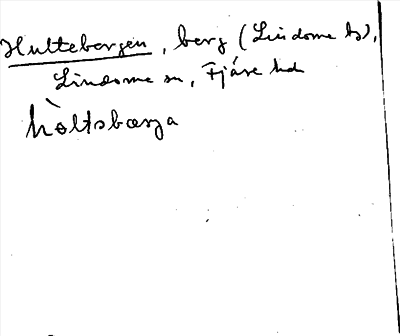 Hultebergen, berg (Lindome by),
Lindome sn, Fjäre hd
hòltsbærja